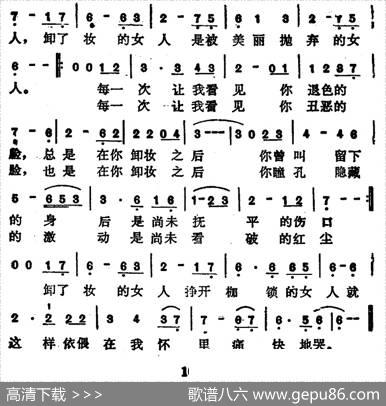 7 - 1 7 | 6 - 6 3 | 2 - 7 5 | 6 1 3 | 2 - 7 5
人, 卸了 妆 的女 人 是被 美 丽 抛 弃 的女
6 - - :‖: 0 0 1 2 | 3 · 3 4 3 | 2 - 0 1 | 1 2 8 7
人。 每一 次 让我看 见 你 退色的
每一 次 让我看 见 你 丑恶的
7 - 6 | 2 - 6 2 | 2 2 0 4 | 3 - - - | 3 0 2 3 | 4 - 4 6
脸, 总 是 在你 卸妆 之 后 你曾 叫 留下
脸, 也 是 在你 卸妆 之 后 你瞳 孔 隐藏
5 - 6 5 3 | 3 · 6 1 6 | 1 - 2 3 | 2 - 1 2 | 1 - - -
的 身 后 是 尚未 抚 平 的伤 口
的 激 动 是 尚未 看 破 的红 尘
0 0 1 7 | 6 - 6 3 | 2 - 1 7 | 6 · 6 6 5 | 6 - 6
卸了 妆 的女 人 挣开 枷 锁的女 人 就
2 · 2 2 2 | 3 - 4 | 3 3 7 | 7 - 6 7 | 6 · 5 6 | 6 - - ‖
这 样依偎 在 我 怀 里 痛 快 地哭。
1
高清下载 >>> 歌谱八六 www.gepu86.com